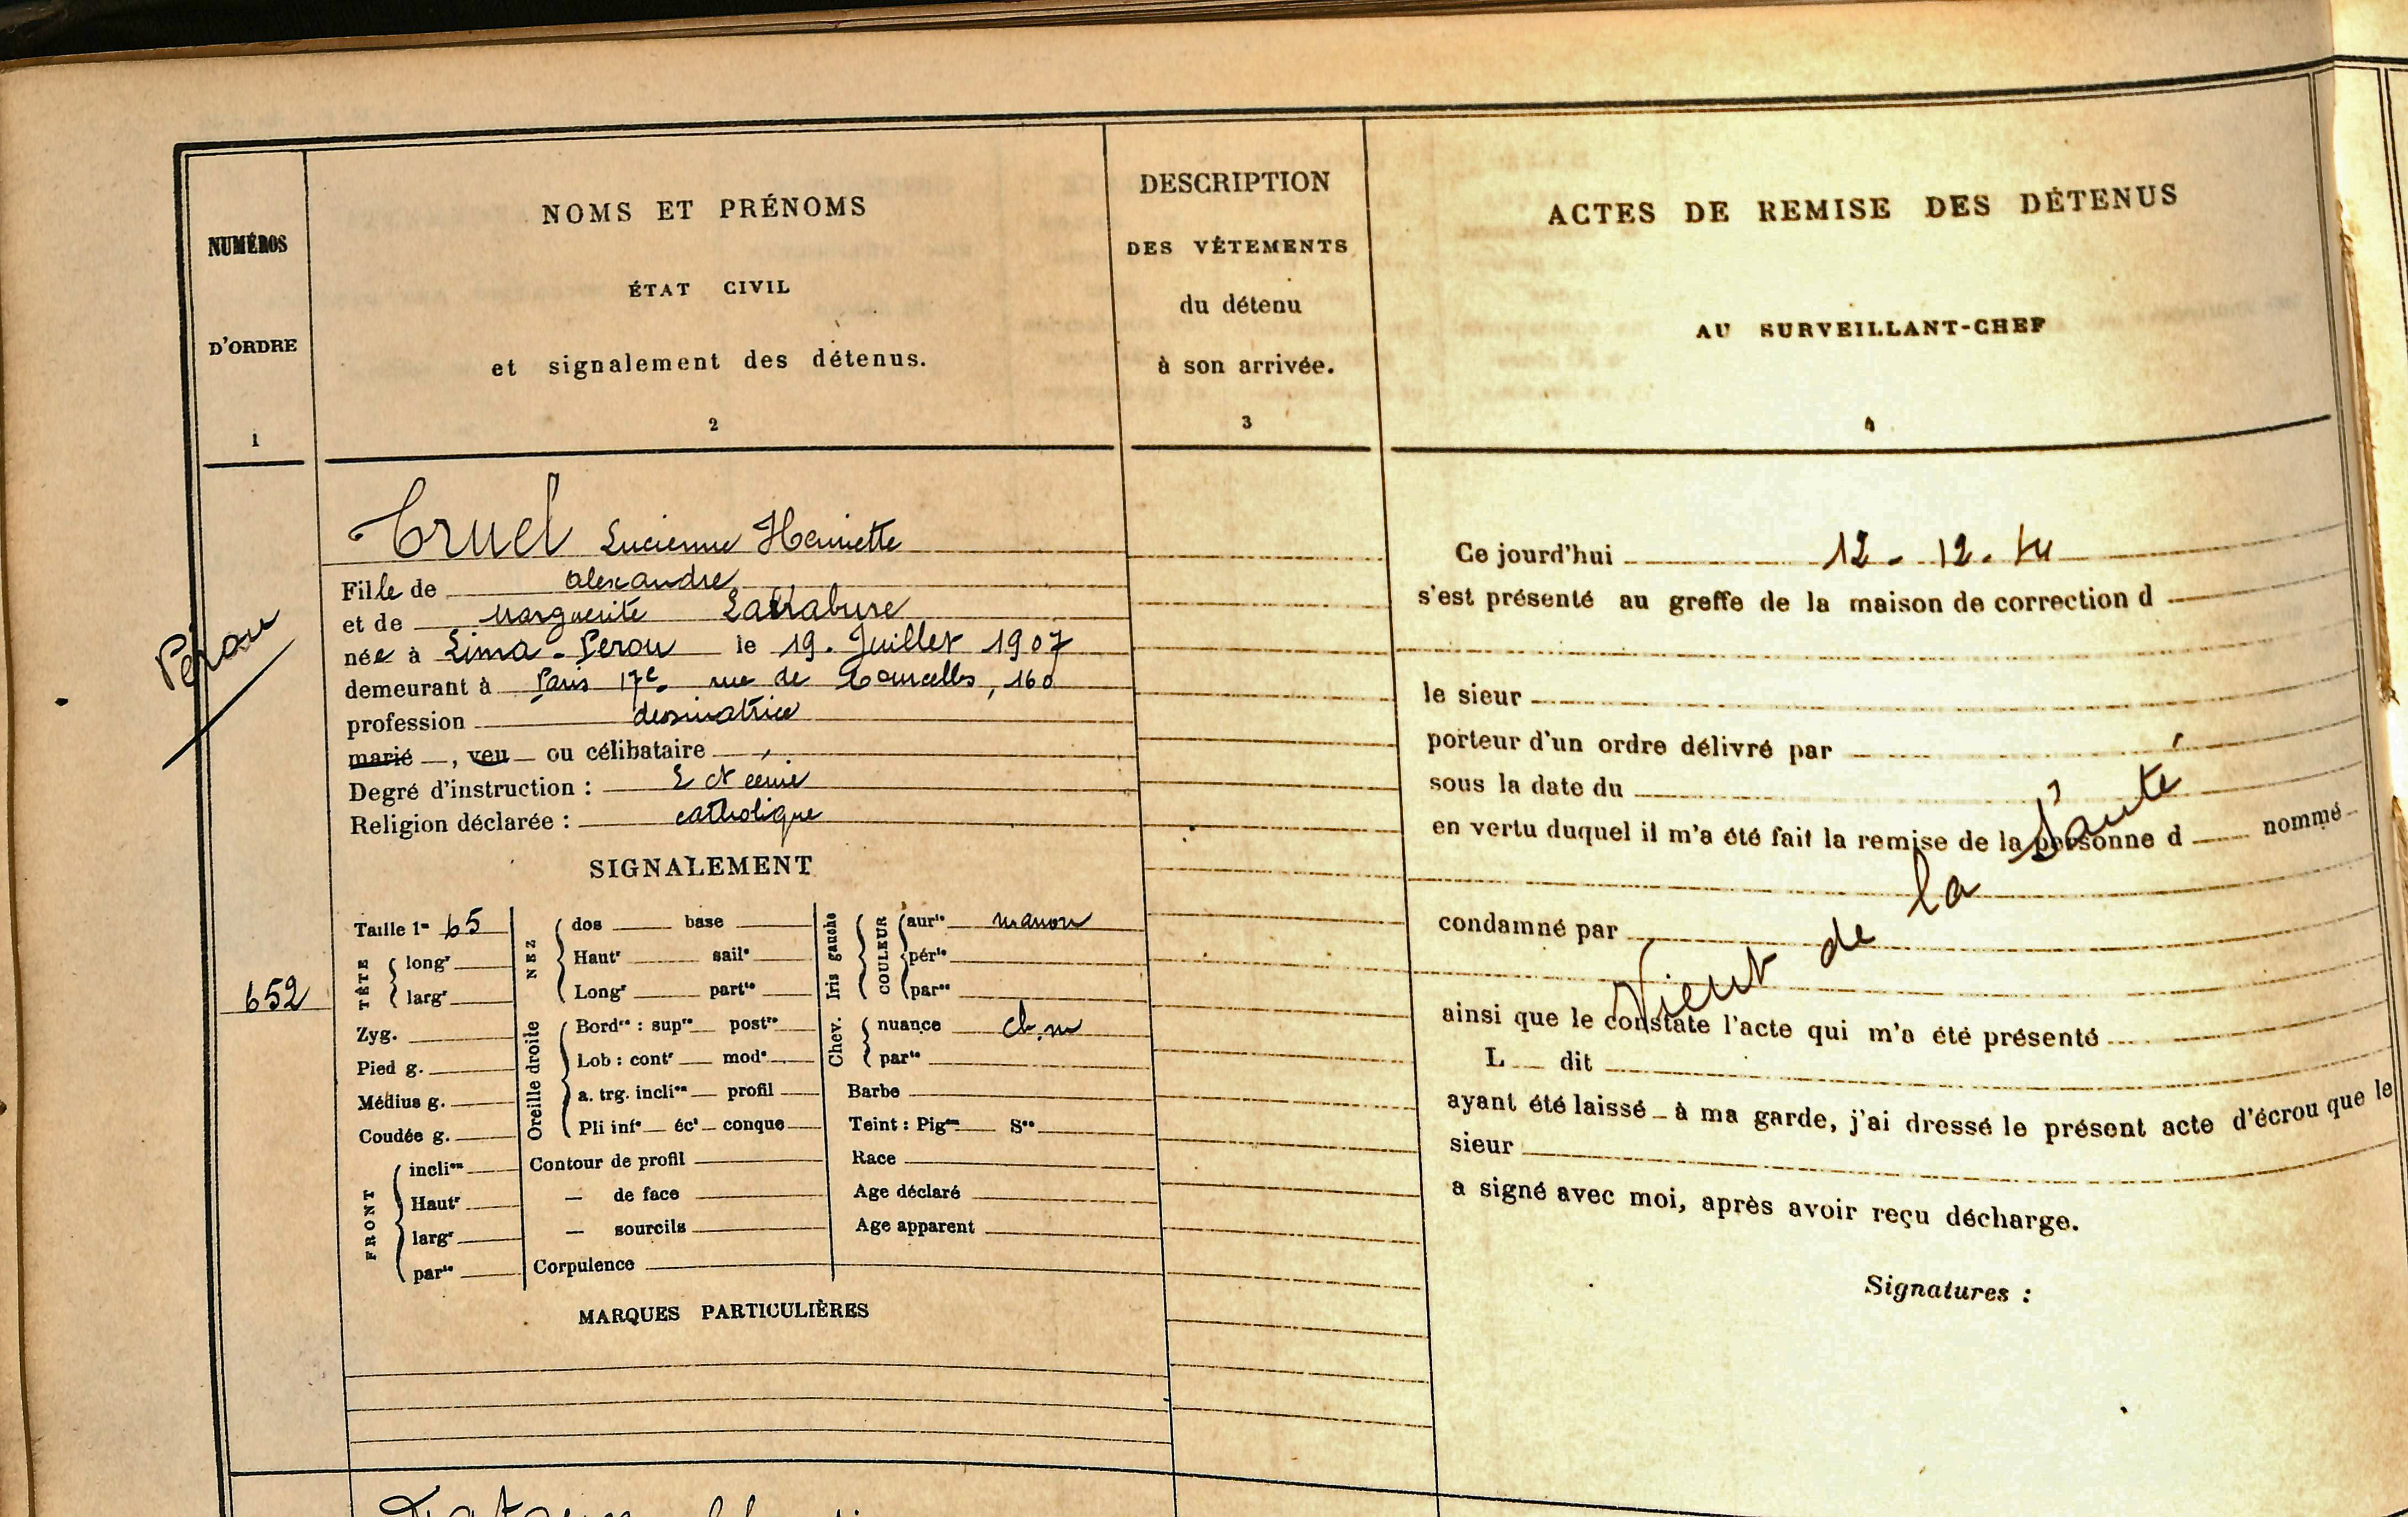 NUMÉROS
D'ORDRE
1
NOMS ET PRÉNOMS
ÉTAT CIVIL
et signalement des détenus.
2
DESCRIPTION
DES VÊTEMENTS
du détenu
à son arrivée.
3
ACTES DE REMISE DES DÉTENUS
AU SURVEILLANT-CHEF
4
Pérou
652
Truel Lucienne Henriette
Fille de alexandre
et de Marguerite Larrabure
née à Lima - Perou le 19. Juillet 1907
demeurant à Paris 17e. rue de Courcelles, 160
profession dessinatrice
marié , veu ou célibataire
Degré d'instruction :
Religion déclarée : catholique
SIGNALEMENT
Taille 1m 65
TÊTE
longr
largr
Zyg.
Pied g.
Médius g.
Coudée g.
FRONT
inclion
Hautr
largr
parté
NEZ
dos base
Hautr sailie
Longr parté
Oreille droite
Bordre : supre postre
Lob : contr modé
a. trg. inclion profil
Pli infr écr conque
Contour de profil
— de face
— sourcils
Corpulence
Iris gauche
COULEUR
aurle marron
pérle
parés
Chev.
nuance ch. m
parté
Barbe
Teint : Pigre Sne
Race
Age déclaré
Age apparent
MARQUES PARTICULIÈRES
Ce jourd'hui 12 - 12. 44
s'est présenté au greffe de la maison de correction d
le sieur
porteur d'un ordre délivré par
sous la date du
en vertu duquel il m'a été fait la remise de la personne d nommé
condamné par
Vient de la Santé
ainsi que le constate l'acte qui m'a été présenté
L dit
ayant été laissé à ma garde, j'ai dressé le présent acte d'écrou que le
sieur
a signé avec moi, après avoir reçu décharge.
Signatures :